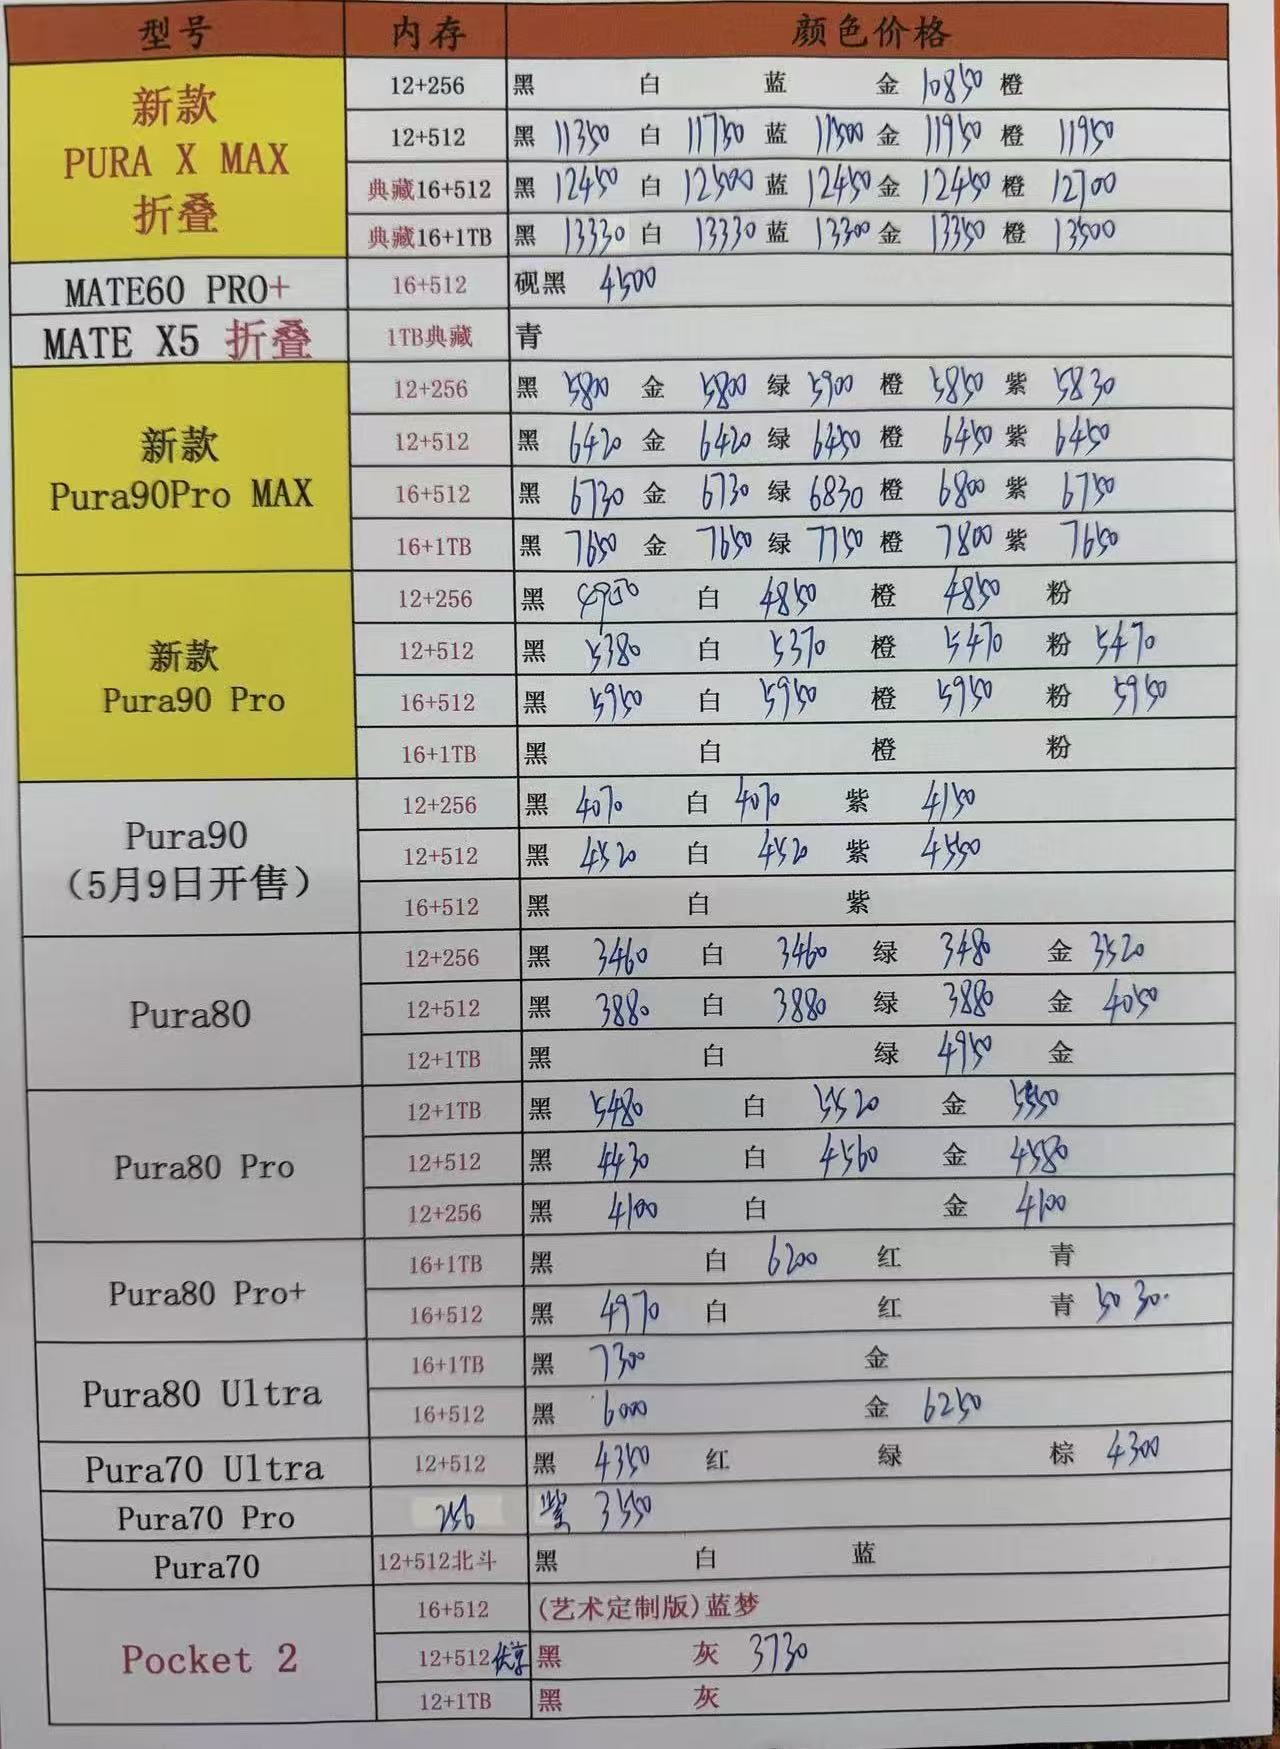 型号 内存 颜色价格
新款 PURA X MAX 折叠
12+256 黑 白 蓝 金 10850 橙
12+512 黑 11350 白 11750 蓝 11500 金 11950 橙 11950
典藏16+512 黑 12450 白 12500 蓝 12450 金 12450 橙 12700
典藏16+1TB 黑 13330 白 13330 蓝 13300 金 13350 橙 13500
MATE60 PRO+ 16+512 砚黑 4500
MATE X5 折叠 1TB典藏 青
新款 Pura90Pro MAX
12+256 黑 5800 金 5800 绿 5900 橙 5850 紫 5830
12+512 黑 6420 金 6420 绿 6450 橙 6450 紫 6450
16+512 黑 6730 金 6730 绿 6830 橙 6800 紫 6750
16+1TB 黑 7650 金 7650 绿 7750 橙 7800 紫 7650
新款 Pura90 Pro
12+256 黑 白 4850 橙 4850 粉
12+512 黑 5380 白 5370 橙 5470 粉 5470
16+512 黑 5950 白 5950 橙 5950 粉 5950
16+1TB 黑 白 橙 粉
Pura90 (5月9日开售)
12+256 黑 4070 白 4070 紫 4150
12+512 黑 4520 白 4520 紫 4550
16+512 黑 白 紫
Pura80
12+256 黑 3460 白 3460 绿 3480 金 3520
12+512 黑 3880 白 3880 绿 3880 金 4050
12+1TB 黑 白 绿 4950 金
Pura80 Pro
12+1TB 黑 5480 白 5520 金 5550
12+512 黑 4430 白 4560 金 4580
12+256 黑 4100 白 金 4100
Pura80 Pro+
16+1TB 黑 白 6200 红 青
16+512 黑 4970 白 红 青 5030.
Pura80 Ultra
16+1TB 黑 7300 金
16+512 黑 6000 金 6250
Pura70 Ultra 12+512 黑 4350 红 绿 棕 4300
Pura70 Pro 256 紫 3550
Pura70 12+512北斗 黑 白 蓝
Pocket 2
16+512 (艺术定制版)蓝梦
12+512优享 黑 灰 3730
12+1TB 黑 灰